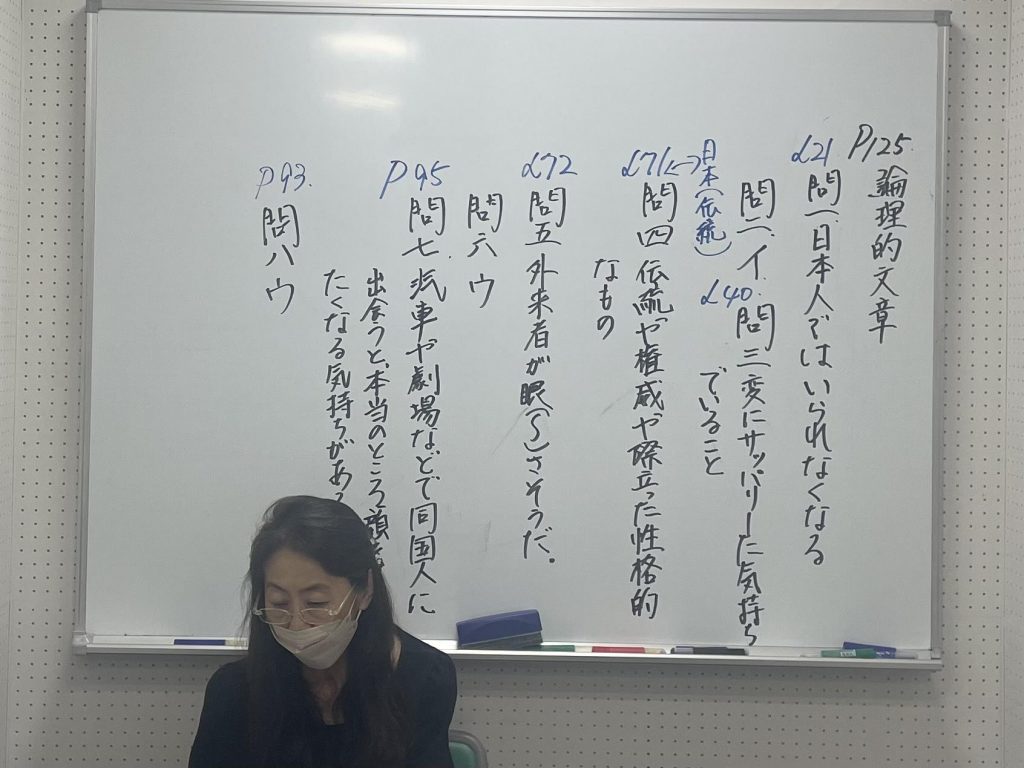 P125
論理的文章
ℓ21
問一日本人ではいられなくなる
問二、イ.
ℓ40.
問三変にサッパリーた気持ち
でいること
日本(伝統)
ℓ71←→
問四 伝統や権威や際立った性格的
なもの
ℓ72
問五 外来者が眼(〜)さそうだ。
問六 ウ
P95
問七.汽車や劇場などで同国人に
出会うと、本当のところ
たくなる気持ちがある
P93.
問八ウ